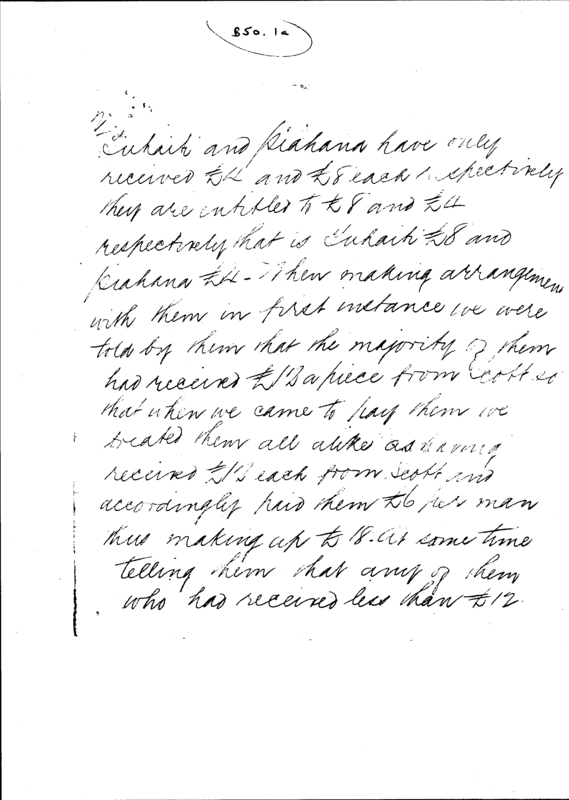 B50. 1a
Tuhaiti and Kiahana have only
received £4 and £8 each respectively
they are entitled to £8 and £4
respectively that is Tuhaiti £8 and
Kiahana £4 - When making arrangemen
with them in first instance we were
told by them that the majority of them
had received £12 a piece from Scott so
that when we came to pay them we
treated them all alike as having
received £12 each from Scott and
accordingly paid them £6 per man
thus making up £18. At same time
telling them that any of them
who had received less than £12